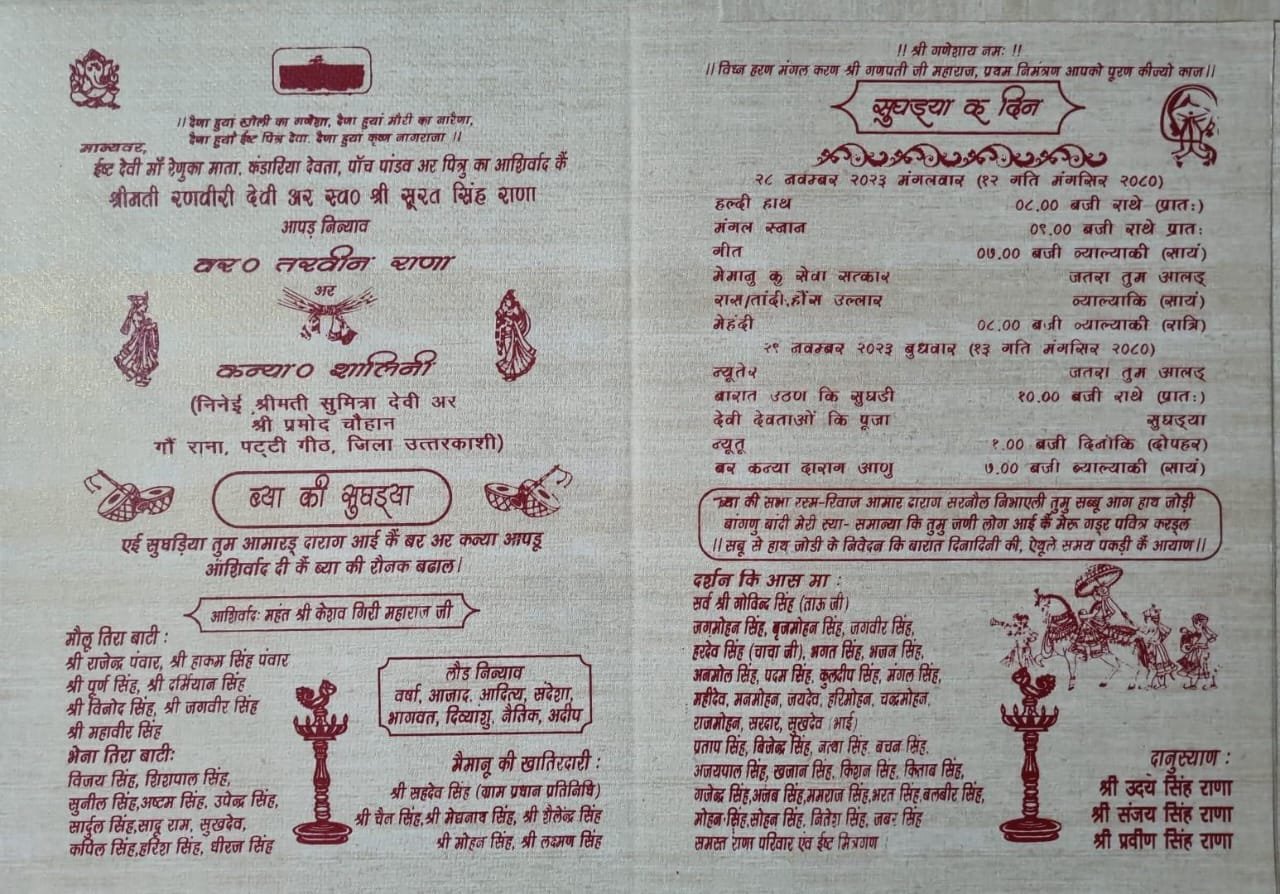 ।। दैणा हुयां खोली का गणेशा, दैणा हुयां मोरी का नारेणा,
दैणा हुयां ईष्ट पित्र देवा. दैणा हुयां कृष्ण नागराजा ।।
मान्यवर,
ईष्ट देवी माँ रेणुका माता, कंडारिया देवता, पाँच पांडव अर पित्रु का आशिर्वाद कैं
श्रीमती रणवीरी देवी अर स्व० श्री सूरत सिंह राणा
आपड़ निन्याव
वर० तरवीन राणा
अर
कन्या० शालिनी
(निनेई श्रीमती सुमित्रा देवी अर
श्री प्रमोद चौहान
गौं राना, पट्टी गीठ, जिला उत्तरकाशी)
ब्या की सुघड्या
एई सुघड़िया तुम आमारड् दाराग आई कैं बर अर कन्या आपडू
आंशिर्वाद दी कैं ब्या की रौनक बढाल।
आशिर्वादः महंत श्री केशव गिरी महाराज जी
मौलू तिरा बाटी :
श्री राजेन्द्र पंवार, श्री हाकम सिंह पंवार
श्री पूर्ण सिंह, श्री दर्मियान सिंह
श्री विनोद सिंह, श्री जगवीर सिंह
श्री महावीर सिंह
भेना तिरा बाटीः
विजय सिंह, शिशपाल सिंह,
सुनील सिंह,अष्टम सिंह, उपेन्द्र सिंह,
सार्दुल सिंह,सादू राम, सुखदेव,
कपिल सिंह,हरिश सिंह, धीरज सिंह
लौड निन्याव
वर्षा, आजाद, आदित्य, संदेशा,
भागवत, दिव्यांशु, नैतिक, अदीप
मैमानू की खातिरदारी :
श्री सहदेव सिंह (ग्राम प्रधान प्रतिनिधि)
श्री चैन सिंह,श्री मेघनाथ सिंह, श्री शैलेन्द्र सिंह
श्री मोहन सिंह, श्री लक्ष्मण सिंह
!! श्री गणेशाय नमः !!
।। विघ्न हरण मंगल करण श्री गणपती जी महाराज, प्रथम निमंत्रण आपको पूरण कीज्यो काज।।
सुघड्या क दिन
२८ नवम्बर २०२३ मंगलवार (१२ गति मंगसिर २०८०)
हल्दी हाथ ०८.०० बजी राथे (प्रातः)
मंगल स्नान ०९.०० बजी राथे प्रातः
गीत ०७.०० बजी ब्याल्याकी (सायं)
मेमानु कु सेवा सत्कार जतरा तुम आलड्
रास/तांदी,हौंस उल्लार ब्याल्याकि (सायं)
मेहंदी ०८.०० बजी ब्याल्याकी (रात्रि)
२९ नवम्बर २०२३ बुधवार (१३ गति मंगसिर २०८०)
न्यूतेर जतरा तुम आलड्
बारात उठण कि सुघडी १०.०० बजी राथे (प्रातः)
देवी देवताओं कि पूजा सुघड्या
न्यूतू १.०० बजी दिनोकि (दोपहर)
बर कन्या दाराग आणु ७.०० बजी ब्याल्याकी (सायं)
ब्या की सभा रस्म-रिवाज आमार दाराग सरनौल निभाएली तुमु सब्बू आग हाथ जोड़ी
बांगणु बांदी मेरी स्या- समान्या कि तुमु जणी लोग आई कैं मेरू गड्र पवित्र करड्ल
।। सबू से हाथ जोडी के निवेदन कि बारात दिनादिनी की, ऐथूले समय पकड़ी कैं आयाण।।
दर्शन कि आस मा :
सर्व श्री गोविन्द सिंह (ताऊ जी)
जगमोहन सिंह, बृजमोहन सिंह, जगवीर सिंह,
हरदेव सिंह (चाचा जी), भगत सिंह, भजन सिंह,
अनमोल सिंह, पदम सिंह, कुलदीप सिंह, मंगल सिंह,
महीदेव, मनमोहन, जयदेव, हरिमोहन, चन्द्रमोहन,
राजमोहन, सरदार, सुखदेव (भाई)
प्रताप सिंह, बिजेन्द्र सिंह, नत्था सिंह, बचन सिंह,
अजयपाल सिंह, खजान सिंह, किशन सिंह, किताब सिंह,
गजेन्द्र सिंह,अजब सिंह,ममराज सिंह,भरत सिंह,बलबीर सिंह,
मोहन सिंह,सोहन सिंह, नितेश सिंह, जबर सिंह
समस्त राणा परिवार एंव ईष्ट मित्रगण
दानुस्याण :
श्री उदय सिंह राणा
श्री संजय सिंह राणा
श्री प्रवीण सिंह राणा